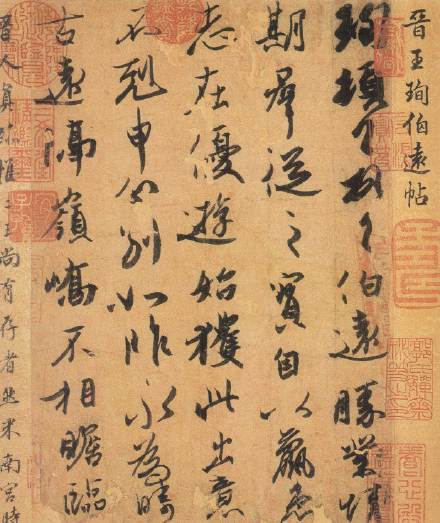 晋王珣伯遠帖
珣頓首頓首伯遠勝業情
期羣從之寶自以羸患
志在優遊始獲此出意
不剋申分別如昨永為疇
古遠隔嶺嶠不相瞻臨
晉人真跡惟二王尚有存者然米南宮時